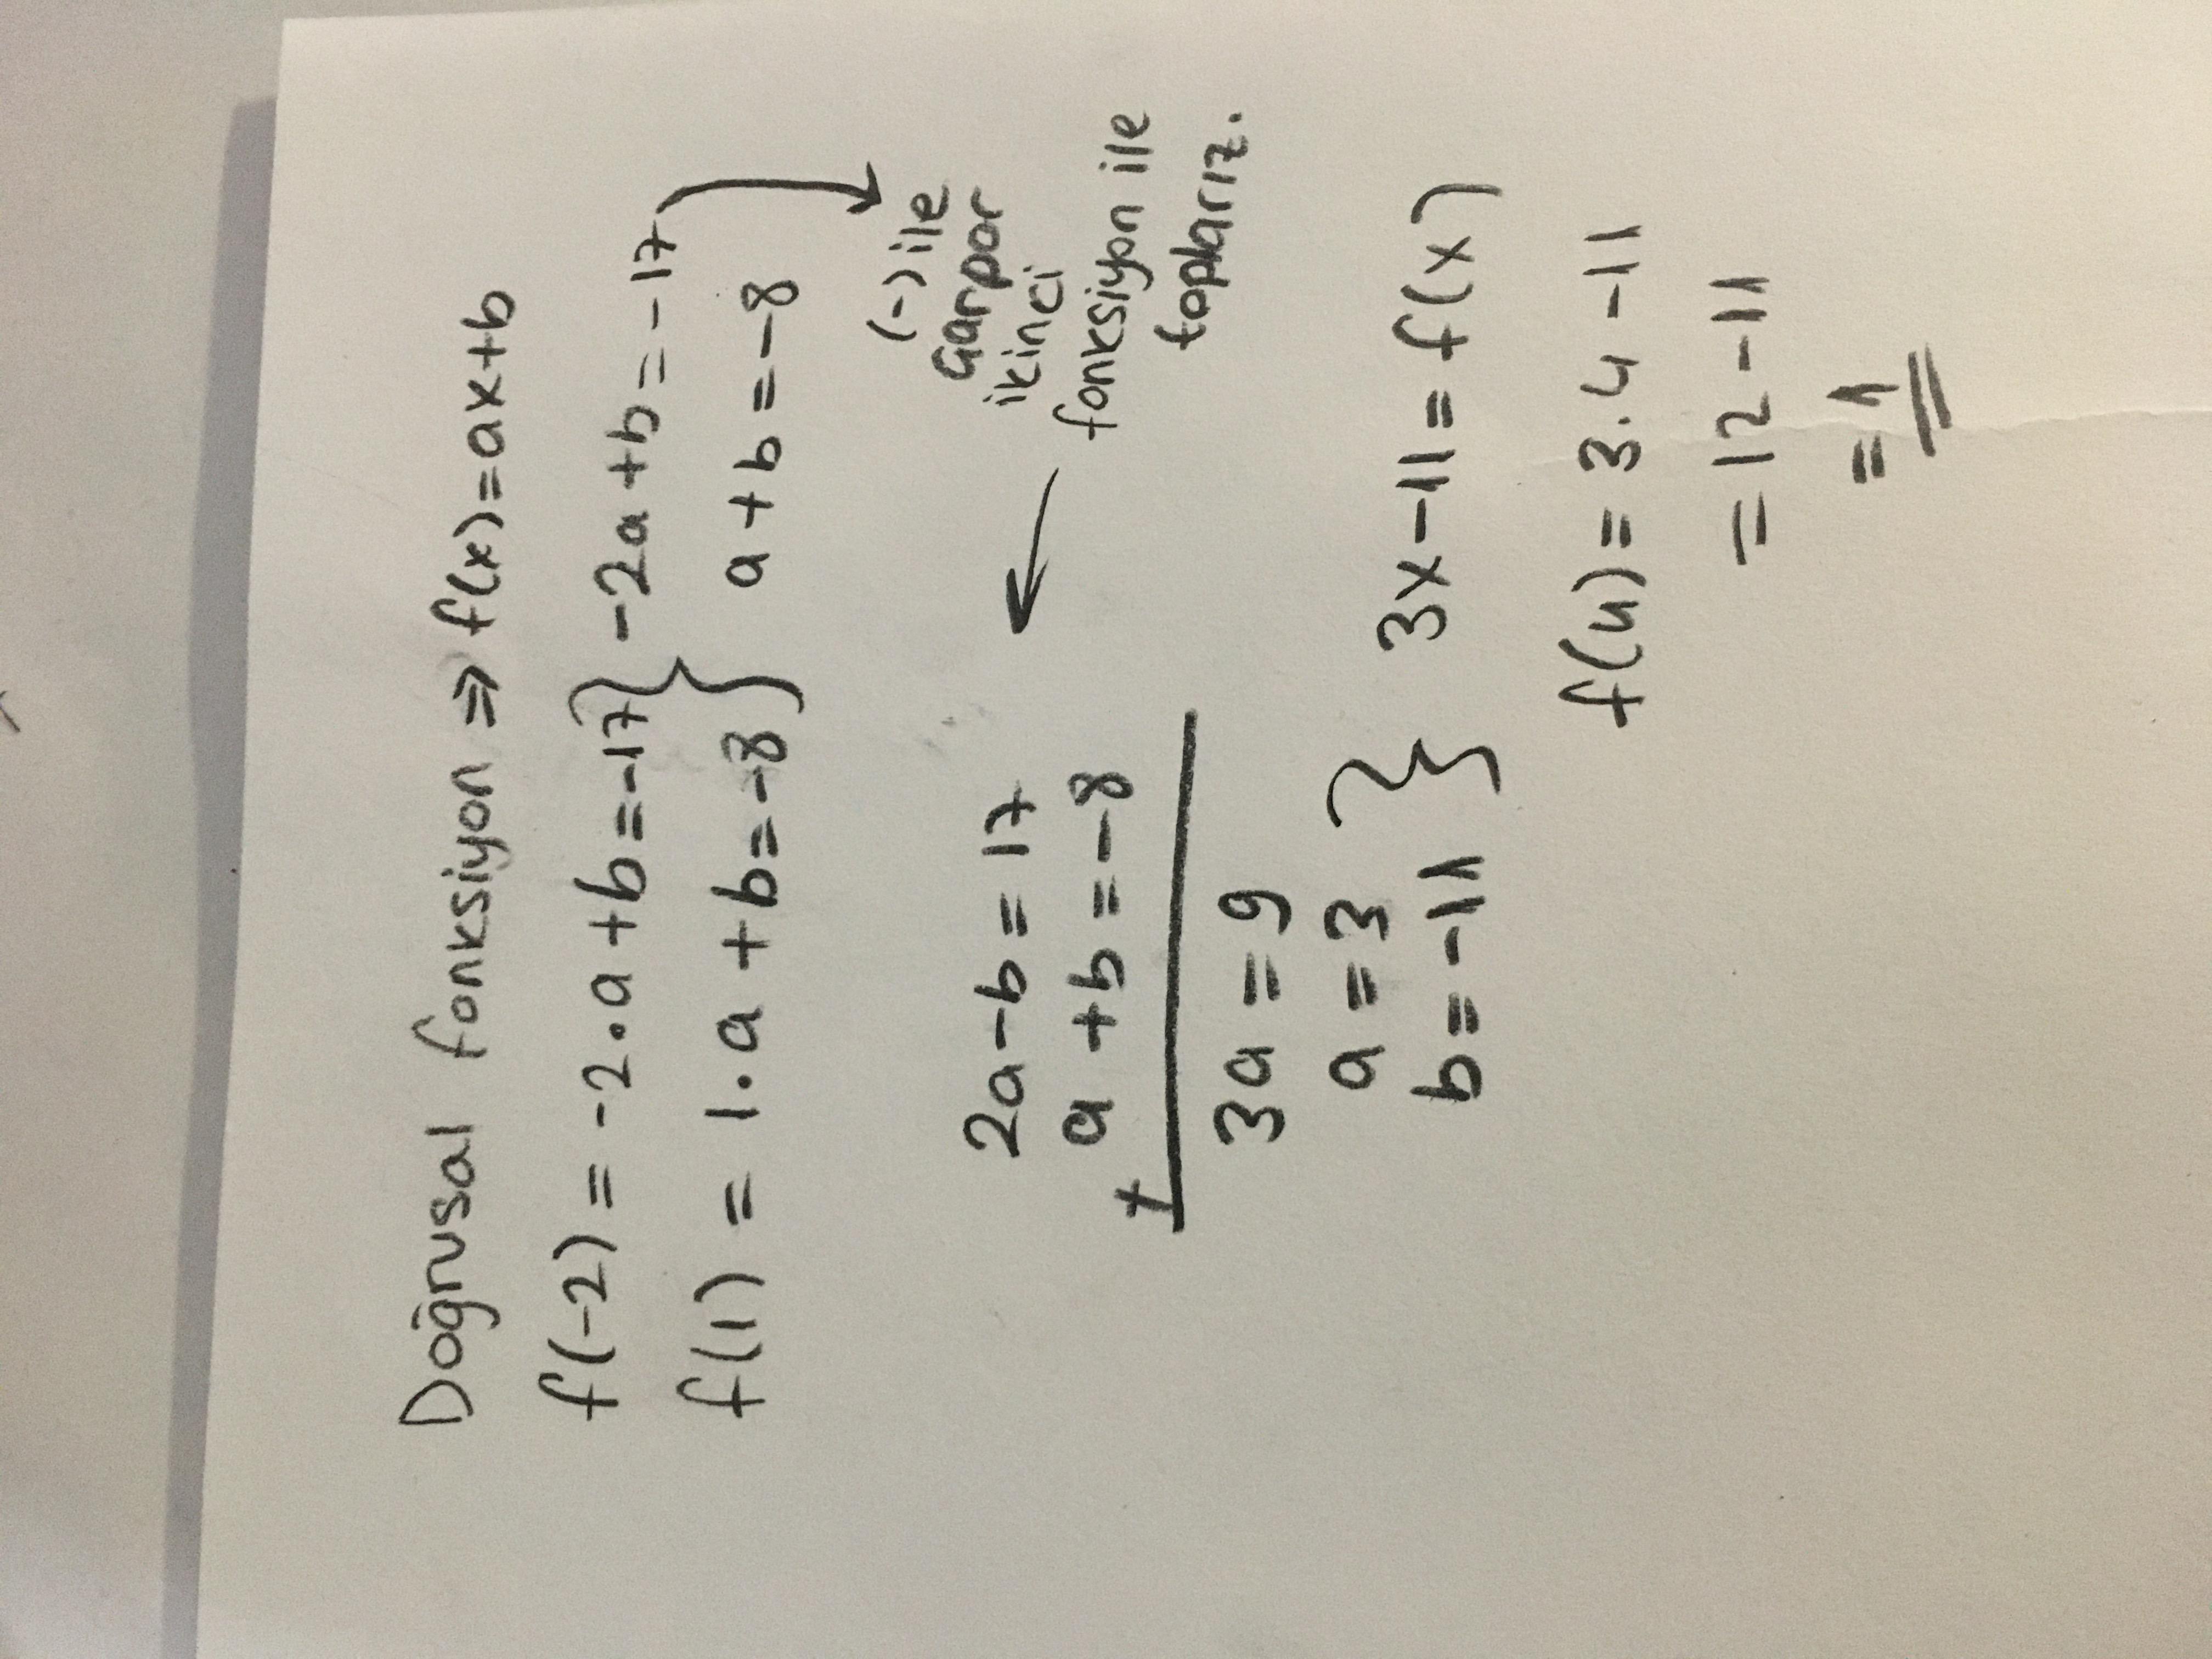 Doğrusal fonksiyon ⇒ f(x)=ax+b
f(-2) = -2.a+b=-17 } -2a+b=-17
f(1) = 1.a+b=-8 } a+b=-8
(-) ile
çarpar
ikinci
fonksiyon ile
toplarız.
2a-b=17
a+b=-8
+
3a=9
a=3
b=-11 } 3x-11=f(x)
f(4)=3.4-11
=12-11
=1